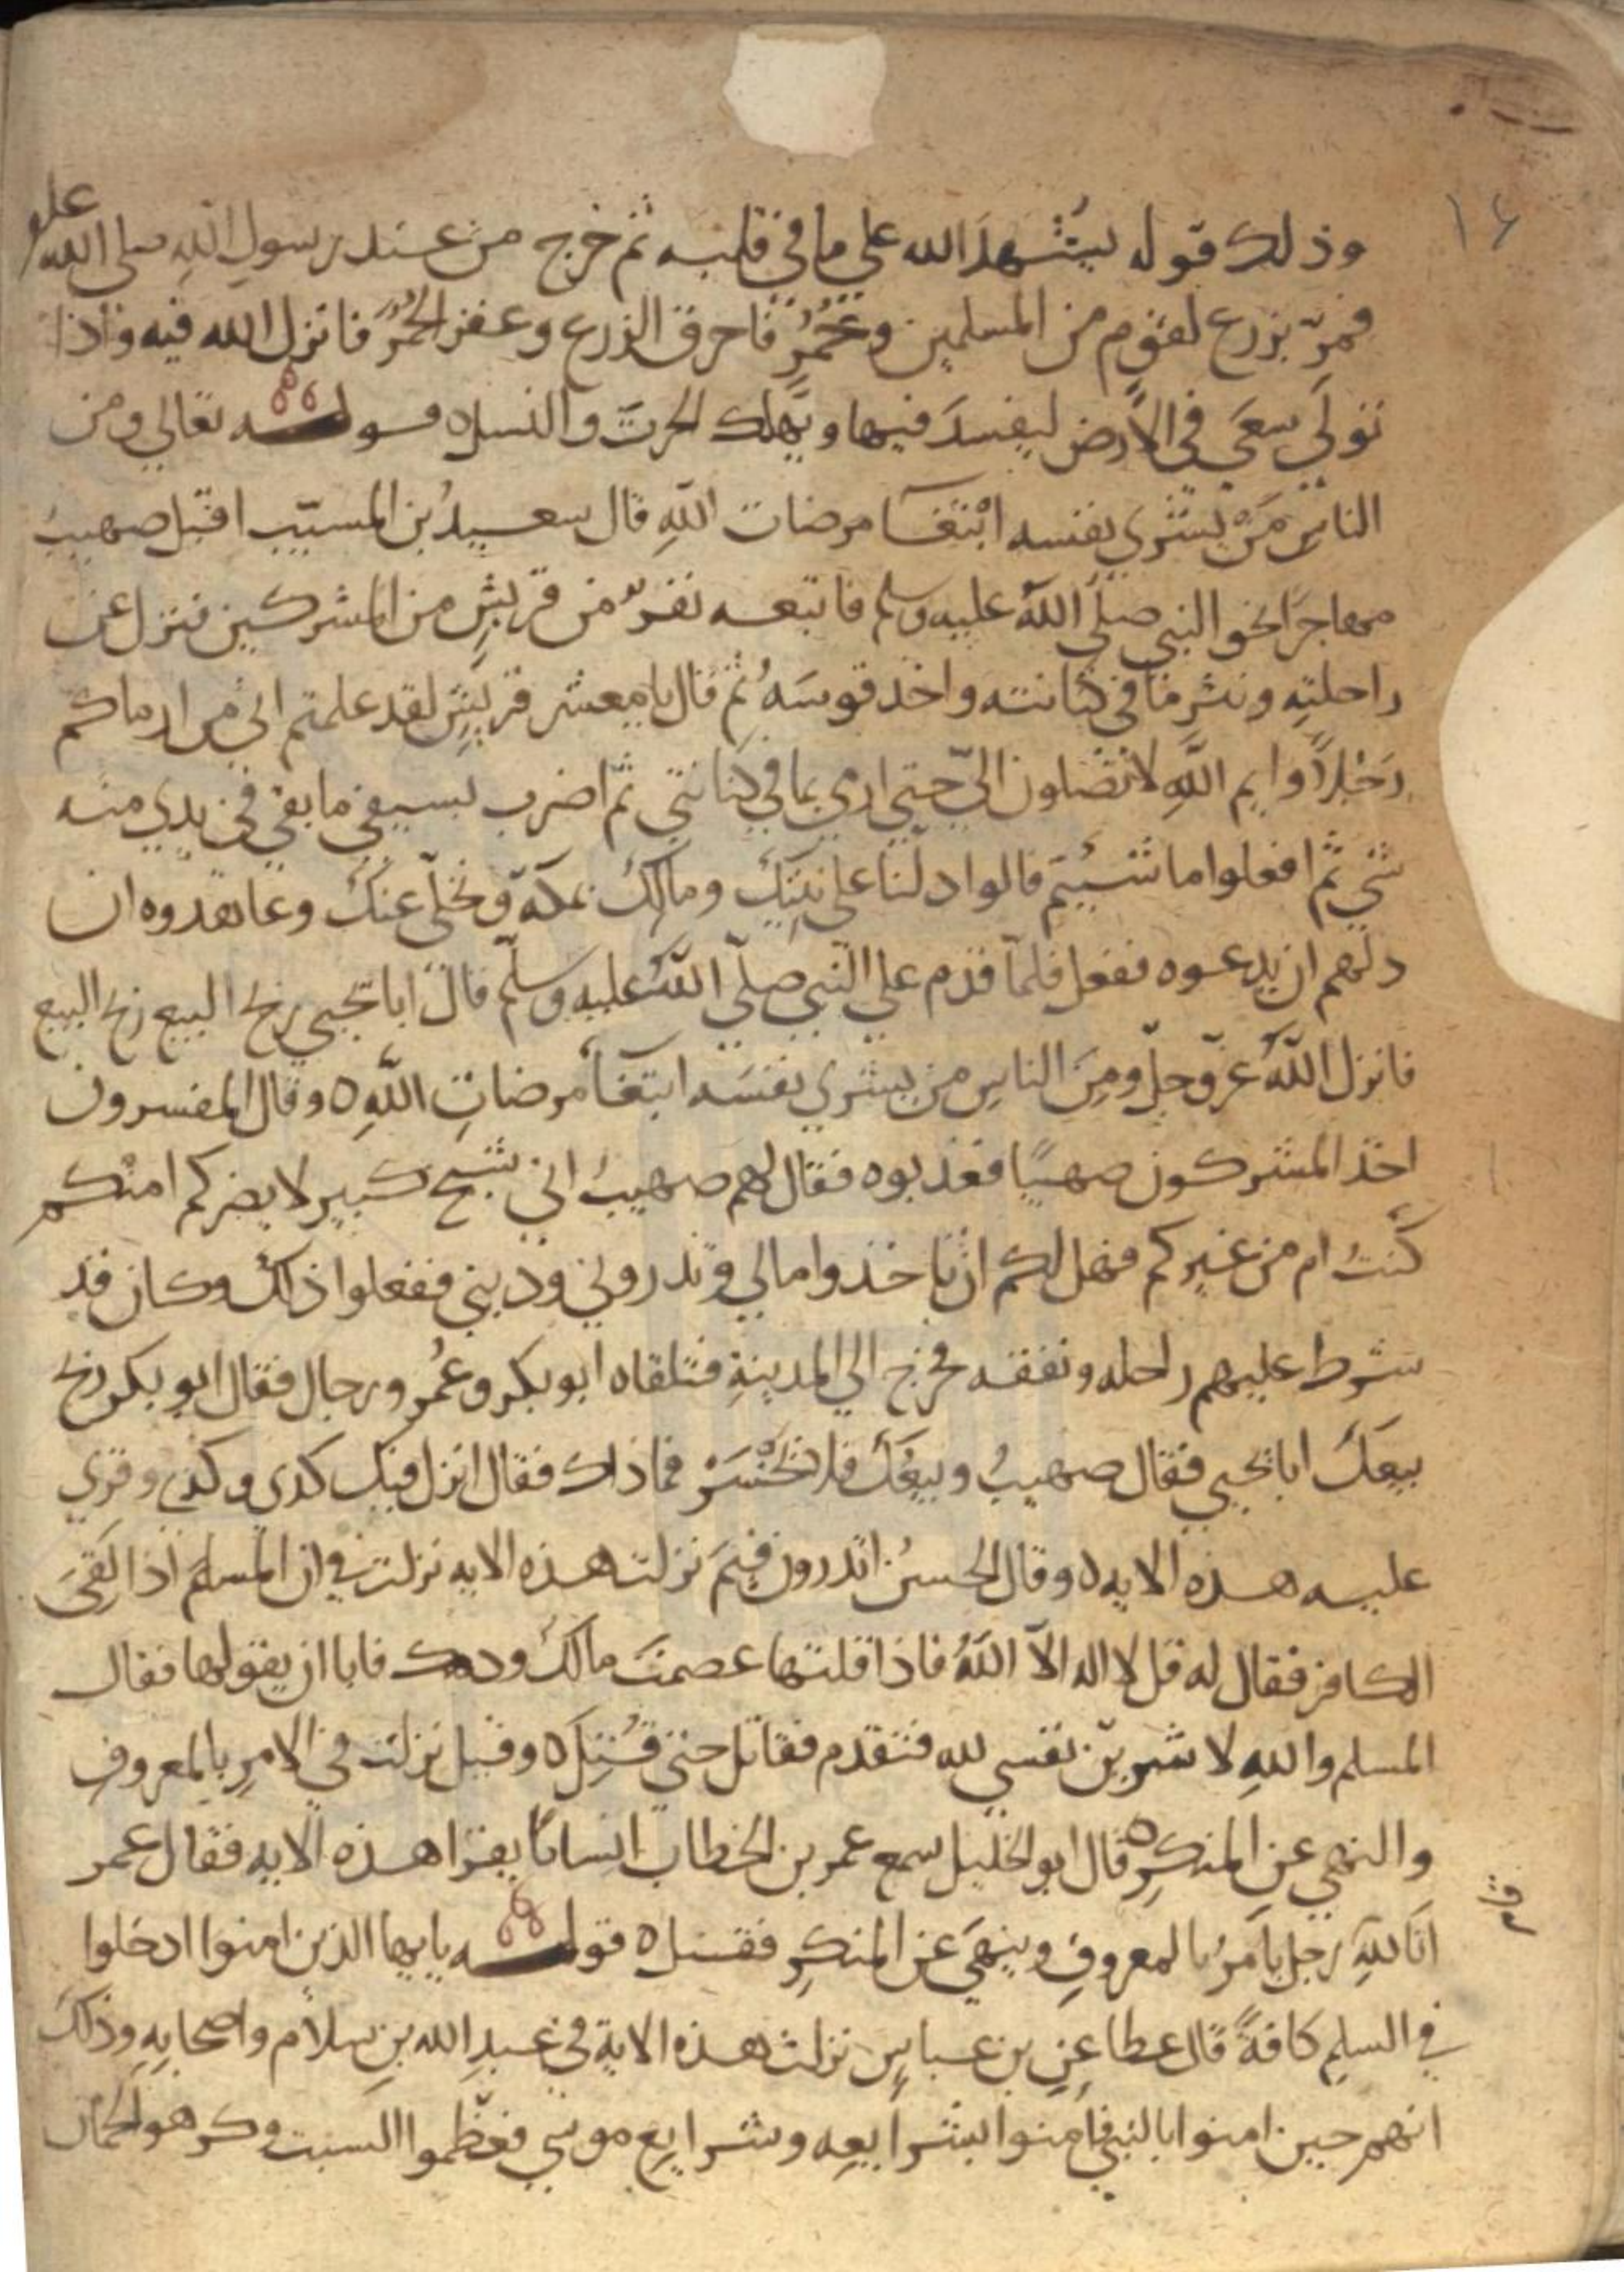 ١٤
وذلك قوله يُشهدُ الله على ما في قلبه ثم خرج من عند رسولِ اللهِ صلى الله عليه
فمرّ بزرع لقوم من المسلمين وحُمُرٍ فاحرق الزرع وعقر الحُمُرَ فانزل الله فيه واذا
تولّى سعَى في الارض ليفسدَ فيها ويُهلك الحرثَ والنسل ه قوله تعالى ومن
الناسِ مَنْ يشري نفسه ابْتغآ مرضات اللهِ قال سعيدُ بن المسيّب اقبل صهيبٌ
مهاجرًا نحو النبي صلّى اللهُ عليه وسلم فاتبعه نفرٌ من قريشٍ من المشركين فنزل عن
راحلتِه ونثر ما في كنانته واخذ قوسَهُ ثم قال يا معشر قريشٍ لقد علمتم اني من ارماكم
رَجُلاً وايم اللهِ لا تصلون اليّ حتى ارمي بما في كنانتي ثم اضرب بسيفي ما بقي في يدي منه
شي ثم افعلوا ما شيتم قالوا دلنا على بيتِكَ ومالِكَ بمكةَ ونخلّي عنكَ وعاهدوه ان
دلهم ان يدعوه ففعل فلمّا قدم على النبي صلّى اللهُ عليه وسلّم قال ابا يحيى ربح البيع ربح البيع
فانزل اللهُ عزّ وجلّ ومِنَ الناسِ من يشري نفسَه ابتغآ مرضاتِ اللهِ ه وقال المفسرون
اخذ المشركون صهيبًا فعذبوه فقال لهم صهيبٌ اني شيخ كبير لا يضركم امنكم
كنتُ ام من غيركم فهل لكم ان تاخذوا مالي وتذروني وديني ففعلوا ذلك وكان قد
شرط عليهم راحله ونفقه فخرج الى المدينةِ فتلقاه ابو بكر وعُمر ورجال فقال ابو بكر ربح
بيعكَ ابا يحيى فقال صهيبٌ وبيعُكَ فلا تخْسَرْ فما ذاك فقال انزل فيك كذي وكذي وقري
عليه هذه الايه ه وقال الحسنُ اتدرون فِيمَ نزلت هذه الايه نزلت في ان المسلم اذا لَقِيَ
الكافر فقال له قل لا اله الاّ اللهُ فاذا قلتها عصمتَ مالكَ ودمك فابا ان يقولها فقال
المسلم واللهِ لاشرينّ نفسي لله فتقدم فقاتل حتى قُتِلَ ه وقيل نزلت في الامرِ بالمعروفِ
والنهي عنِ المنكرِ ه قال ابو الخليل سمع عمر بن الخطاب انسانًا يقرا هذه الايه فقال عمر
انا لله رجل يامرُ بالمعروفِ وينهَى عن المنكرِ فقتل ه قوله يايها الذين امنوا ادخلوا
في السلمِ كافةً قال عطا عن بن عباسٍ نزلت هذه الاية في عبدِ الله بنِ سلامٍ واصحابِه وذلكَ
انهم حين امنوا بالنبي فامنوا بشرايعِه وشرايعِ موسى فعظّموا السبت وكرهوا لحمان